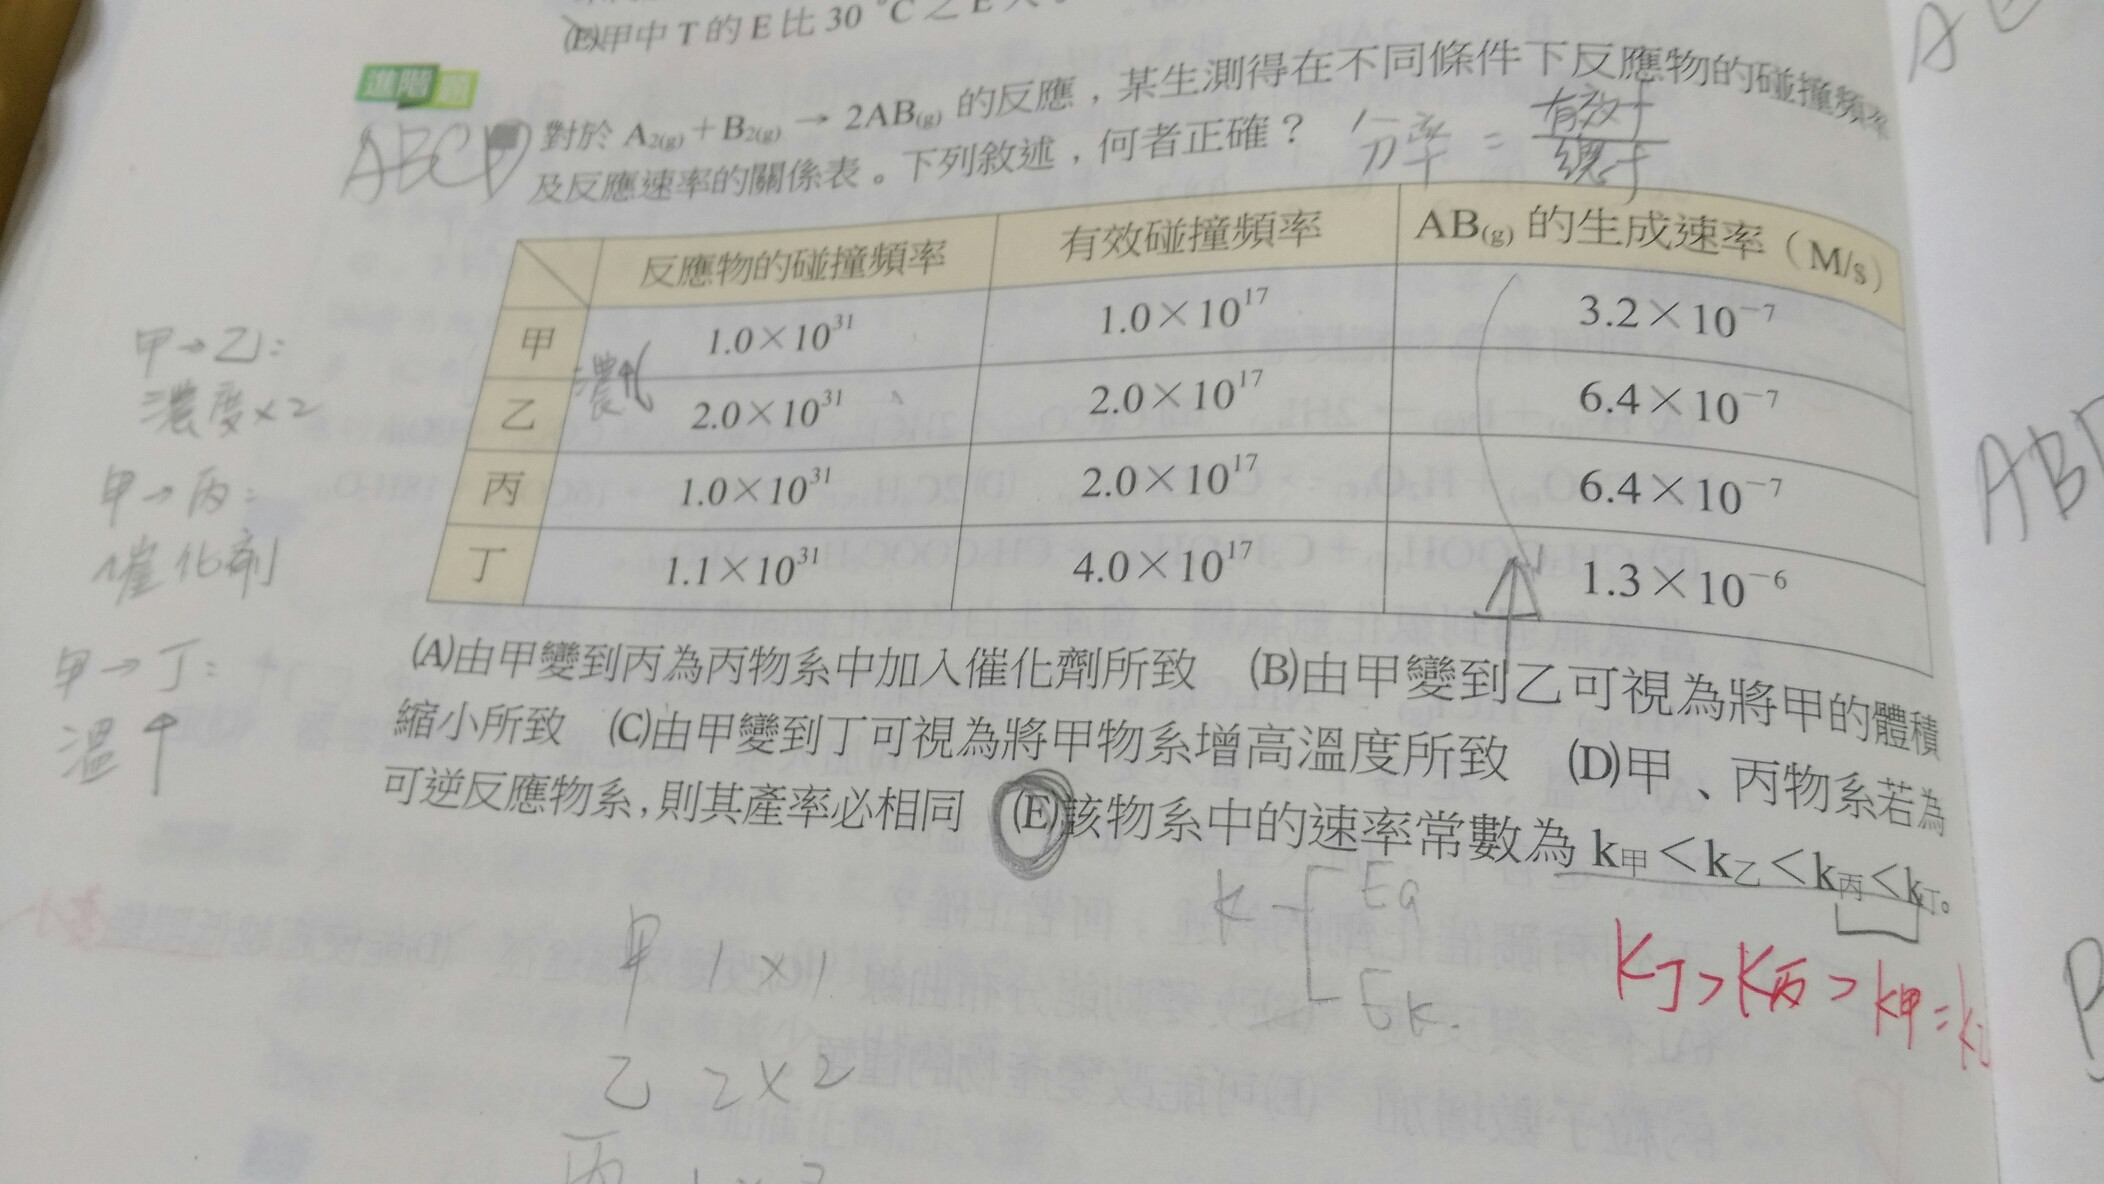 (E)甲中 T 的 E 比 30 °C 之 E 大。
進階題
ABCD
對於 A2(g)+B2(g) → 2AB(g) 的反應，某生測得在不同條件下反應物的碰撞頻率
及反應速率的關係表。下列敘述，何者正確？
分率 = 有效f / 總f
反應物的碰撞頻率 有效碰撞頻率 AB(g) 的生成速率（M/s）
甲 1.0×10³¹ 1.0×10¹⁷ 3.2×10⁻⁷
濃↑
乙 2.0×10³¹ 2.0×10¹⁷ 6.4×10⁻⁷
丙 1.0×10³¹ 2.0×10¹⁷ 6.4×10⁻⁷
丁 1.1×10³¹ 4.0×10¹⁷ 1.3×10⁻⁶
甲→乙:
濃度×2
甲→丙:
催化劑
甲→丁:
溫↑
(A)由甲變到丙為丙物系中加入催化劑所致 (B)由甲變到乙可視為將甲的體積
縮小所致 (C)由甲變到丁可視為將甲物系增高溫度所致 (D)甲、丙物系若為
可逆反應物系，則其產率必相同 (E)該物系中的速率常數為 k甲＜k乙＜k丙＜k丁。
k Ea
Ek.
k丁 > k丙 > k甲 =
甲 1×1
乙 2×2
丙